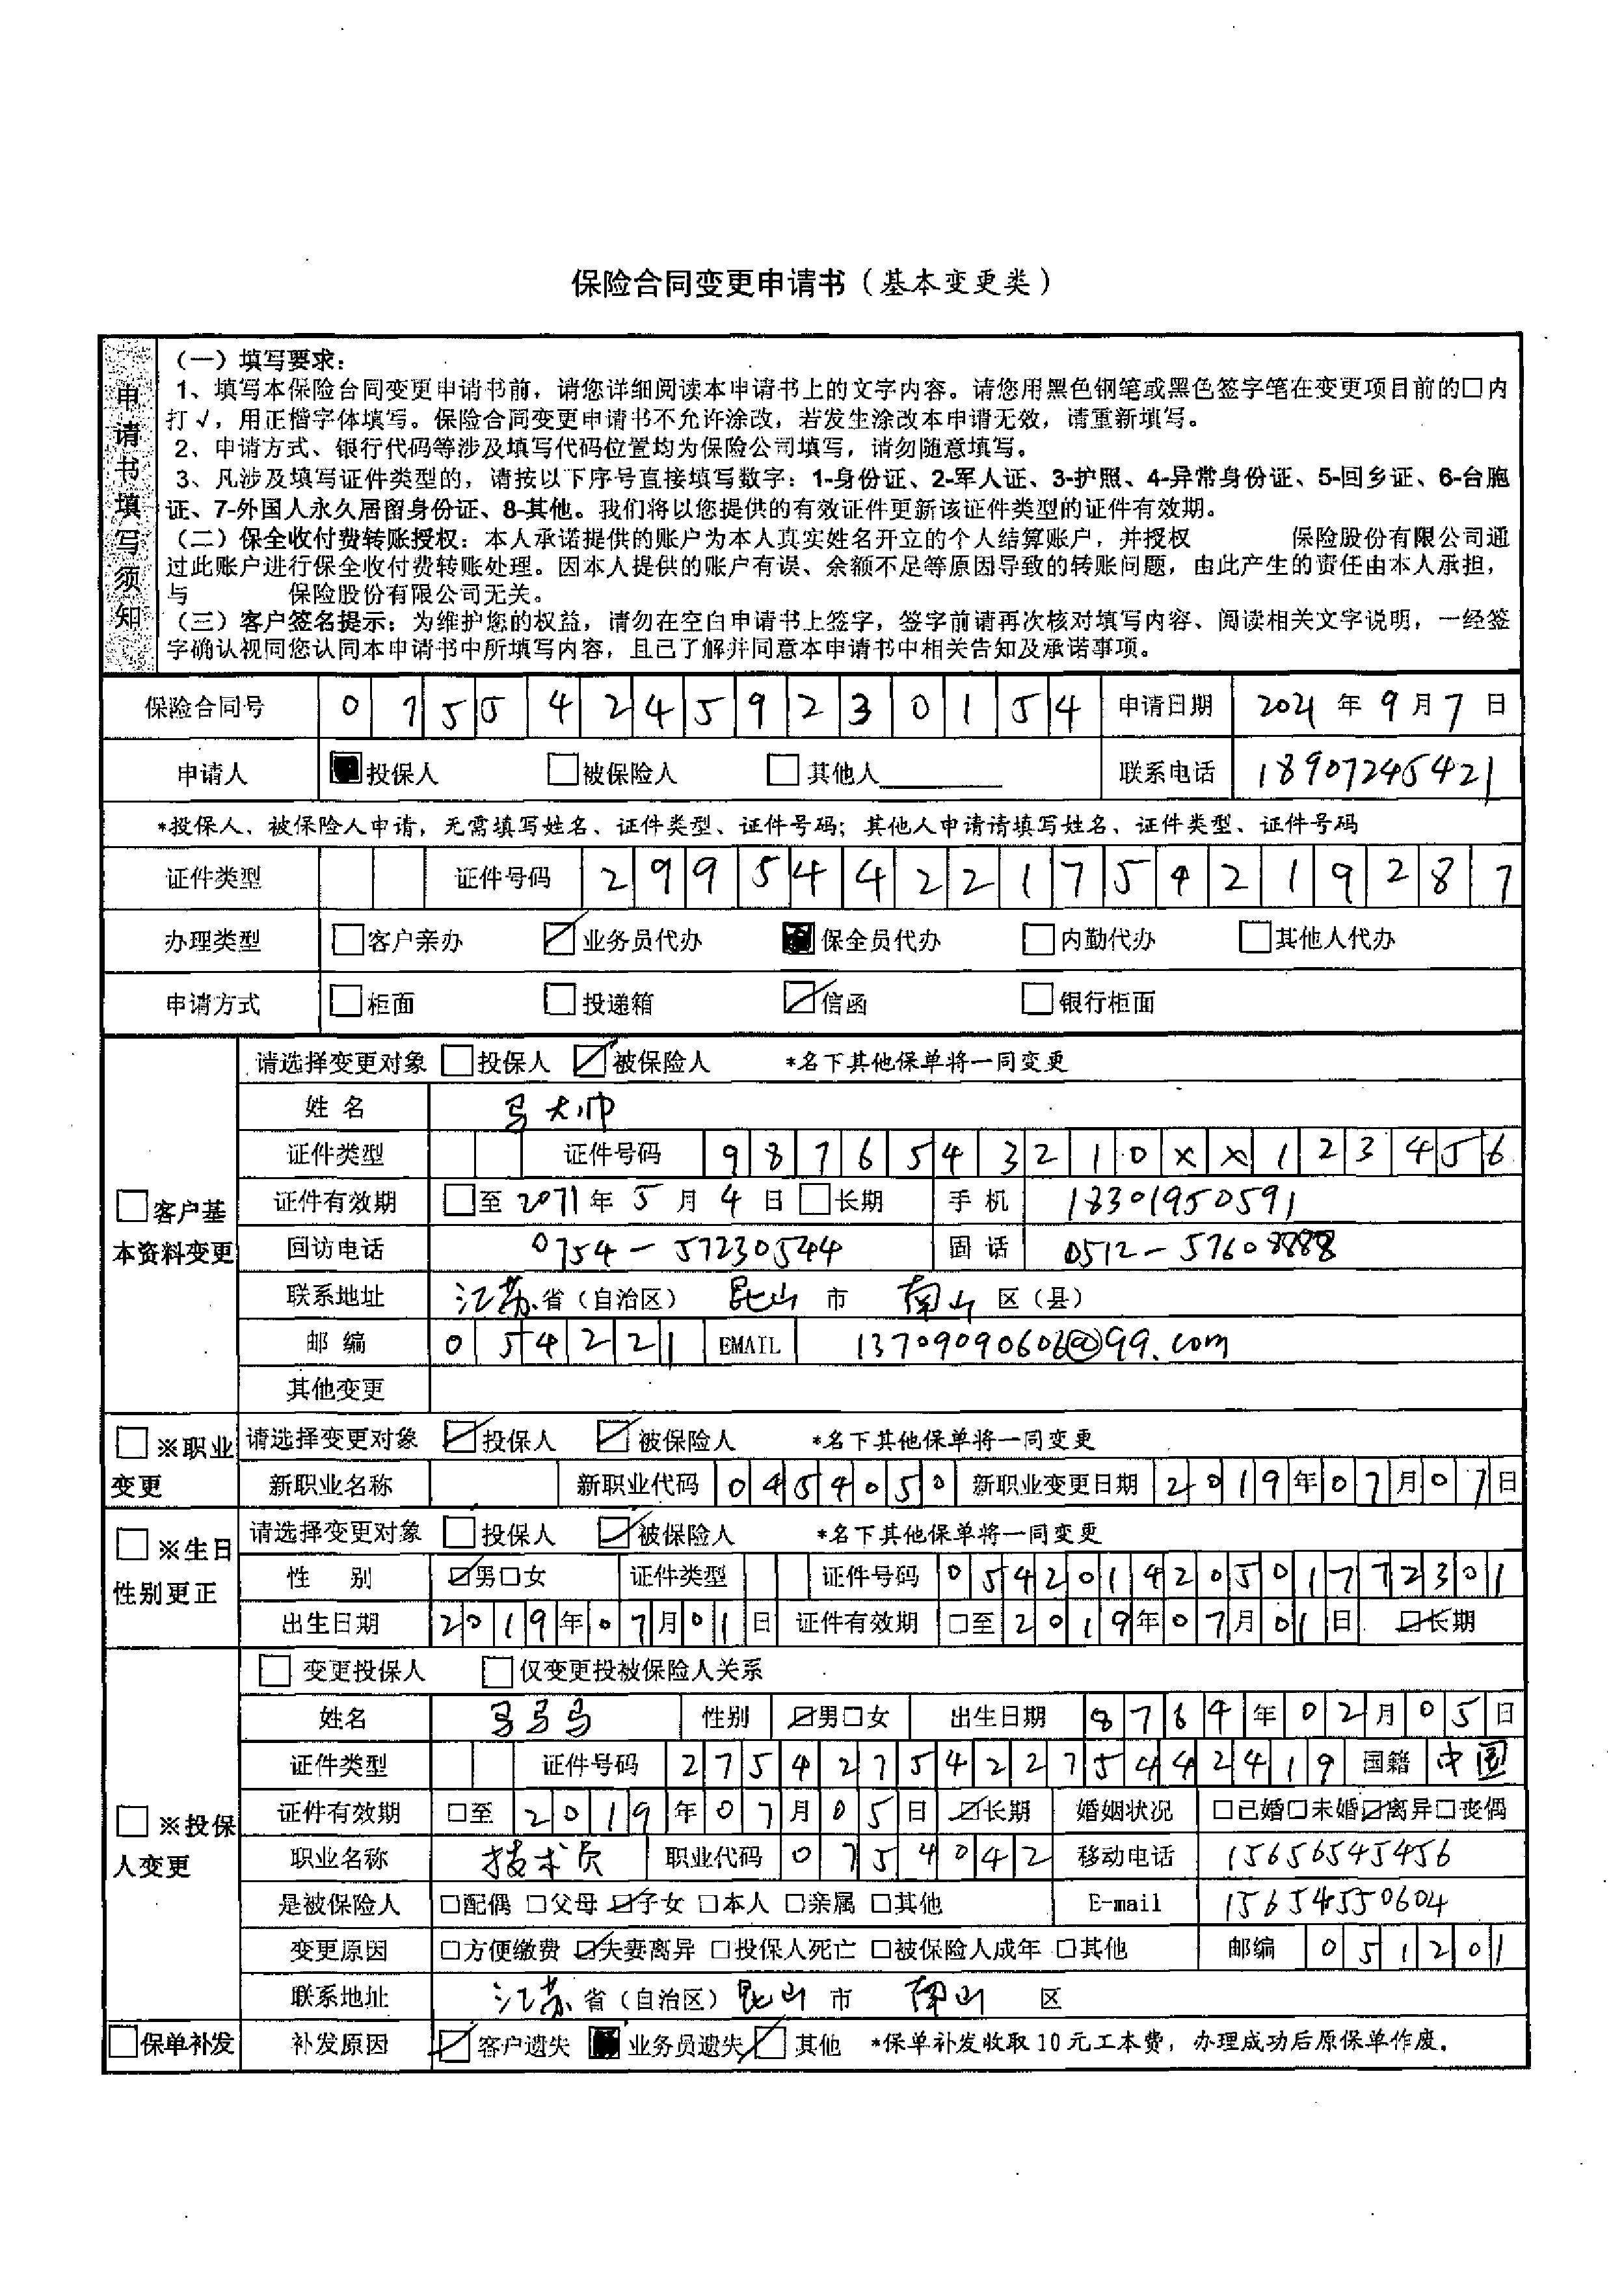 保险合同变更申请书（基本变更类）
申请书填写须知
（一）填写要求：
1、填写本保险合同变更申请书前，请您详细阅读本申请书上的文字内容。请您用黑色钢笔或黑色签字笔在变更项目前的□内
打√，用正楷字体填写。保险合同变更申请书不允许涂改，若发生涂改本申请无效，请重新填写。
2、申请方式、银行代码等涉及填写代码位置均为保险公司填写，请勿随意填写。
3、凡涉及填写证件类型的，请按以下序号直接填写数字：1-身份证、2-军人证、3-护照、4-异常身份证、5-回乡证、6-台胞
证、7-外国人永久居留身份证、8-其他。我们将以您提供的有效证件更新该证件类型的证件有效期。
（二）保全收付费转账授权：本人承诺提供的账户为本人真实姓名开立的个人结算账户，并授权 保险股份有限公司通
过此账户进行保全收付费转账处理。因本人提供的账户有误、余额不足等原因导致的转账问题，由此产生的责任由本人承担，
与 保险股份有限公司无关。
（三）客户签名提示：为维护您的权益，请勿在空白申请书上签字，签字前请再次核对填写内容、阅读相关文字说明，一经签
字确认视同您认同本申请书中所填写内容，且已了解并同意本申请书中相关告知及承诺事项。
保险合同号 075542459230154 申请日期 2021年9月7日
申请人 ■投保人 □被保险人 □其他人 联系电话 18907245421
*投保人、被保险人申请，无需填写姓名、证件类型、证件号码；其他人申请请填写姓名、证件类型、证件号码
证件类型 证件号码 299544221754219287
办理类型 □客户亲办 ☑业务员代办 ■保全员代办 □内勤代办 □其他人代办
申请方式 □柜面 □投递箱 ☑信函 □银行柜面
□客户基本资料变更
请选择变更对象 □投保人 ☑被保险人 *名下其他保单将一同变更
姓 名 马大帅
证件类型 证件号码 9876543210XX123456
证件有效期 □至2071年5月4日 □长期 手 机 18301950591
回访电话 0754-57230544 固 话 0512-57608888
联系地址 江苏省（自治区） 昆山市 南山区（县）
邮 编 054221 EMAIL 13709090606@99.com
其他变更
□※职业变更
请选择变更对象 ☑投保人 ☑被保险人 *名下其他保单将一同变更
新职业名称 新职业代码 0454050 新职业变更日期 2019年07月07日
□※生日性别更正
请选择变更对象 □投保人 ☑被保险人 *名下其他保单将一同变更
性 别 ☑男□女 证件类型 证件号码 054201420501772301
出生日期 2019年07月01日 证件有效期 □至2019年07月01日 ☑长期
□※投保人变更
□变更投保人 □仅变更投被保险人关系
姓名 马马马 性别 ☑男□女 出生日期 8764年02月05日
证件类型 证件号码 275427542275442419 国籍 中国
证件有效期 □至2019年07月05日 ☑长期 婚姻状况 □已婚□未婚☑离异□丧偶
职业名称 技术员 职业代码 0754042 移动电话 15656545456
是被保险人 □配偶 □父母 ☑子女 □本人 □亲属 □其他 E-mail 15654550604
变更原因 □方便缴费 ☑夫妻离异 □投保人死亡 □被保险人成年 □其他 邮编 051201
联系地址 江苏省（自治区）昆山市 南山 区
□保单补发 补发原因 ☑客户遗失 ■业务员遗失 ☑其他 *保单补发收取10元工本费，办理成功后原保单作废。